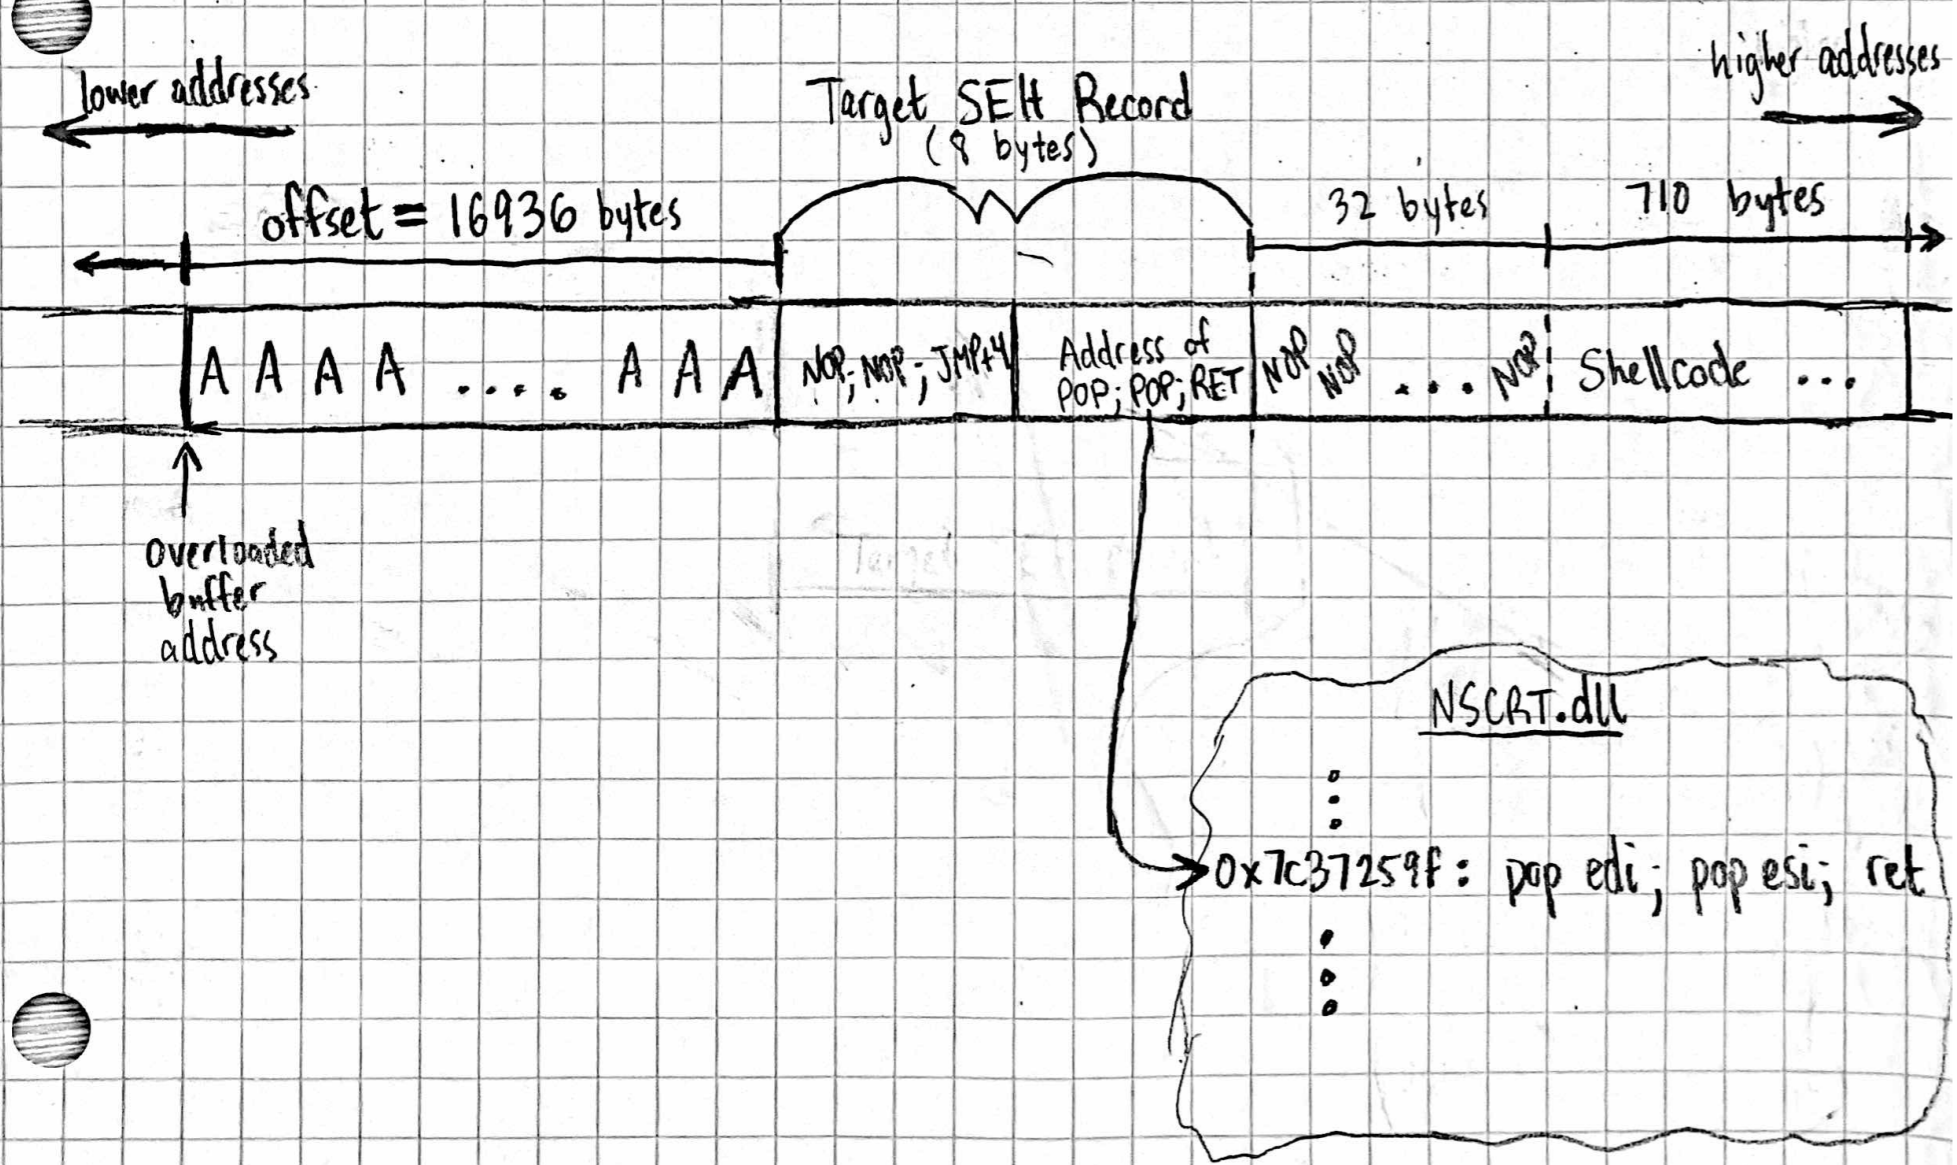 lower addresses
higher addresses
Target SEH Record
(8 bytes)
offset = 16936 bytes
32 bytes
710 bytes
A A A A .... A A A
NOP; NOP; JMP+4
Address of
POP; POP; RET
NOP NOP ... NOP
Shellcode ...
overloaded
buffer
address
NSCRT.dll
0x7c37259f: pop edi; pop esi; ret